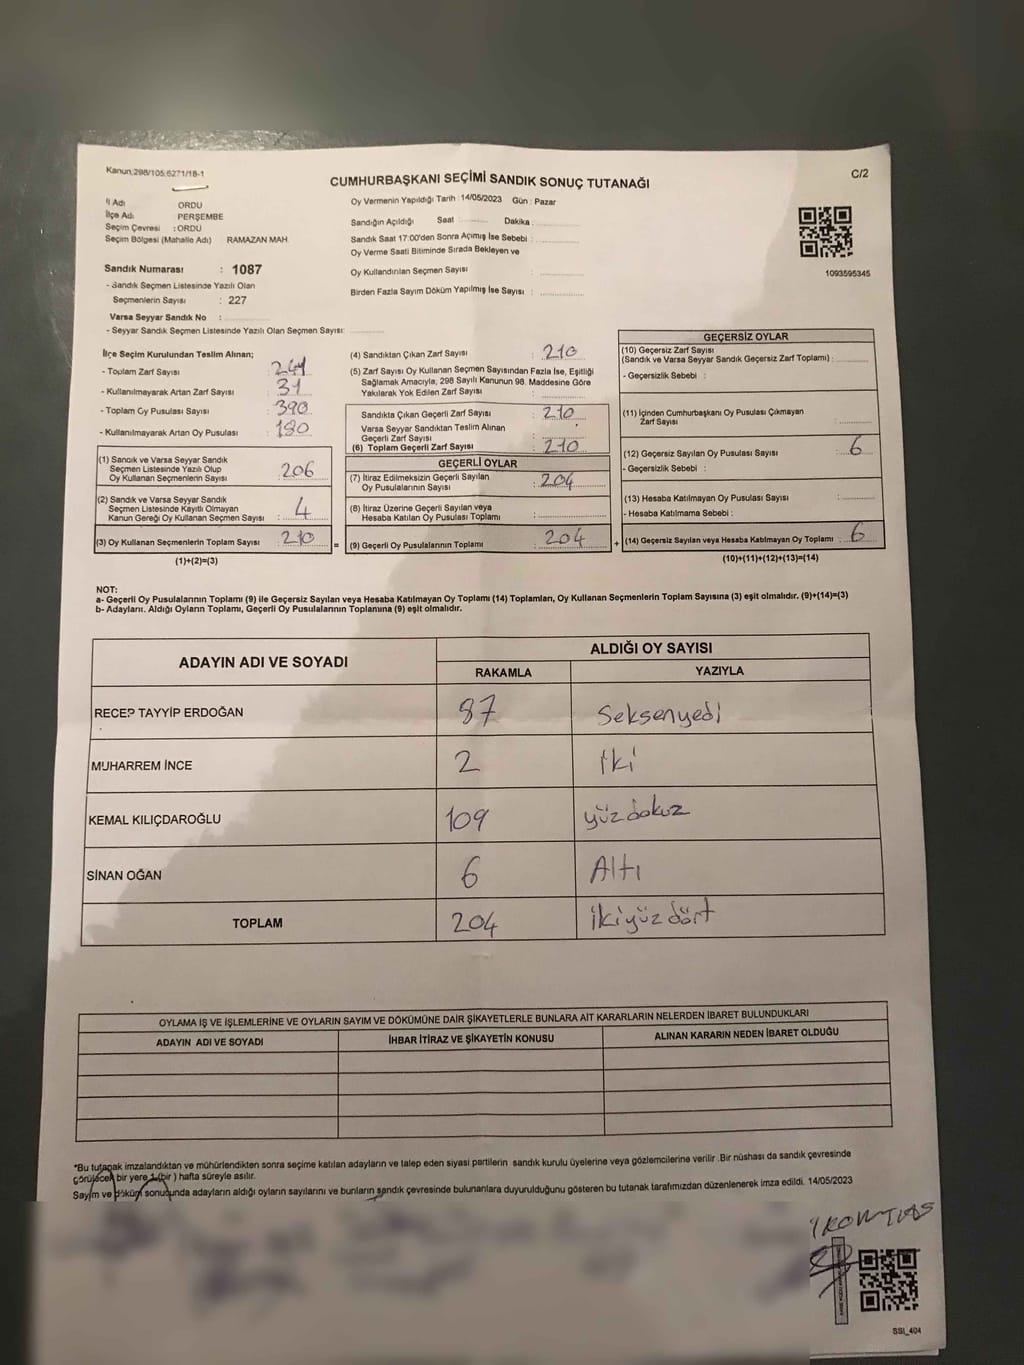 Kanun;298/105;6271/18-1
C/2
CUMHURBAŞKANI SEÇİMİ SANDIK SONUÇ TUTANAĞI
İl Adı ORDU
İlçe Adı : PERŞEMBE
Seçim Çevresi : ORDU
Seçim Bölgesi (Mahalle Adı) RAMAZAN MAH.
Sandık Numarası : 1087
- Sandık Seçmen Listesinde Yazılı Olan
Seçmenlerin Sayısı : 227
Varsa Seyyar Sandık No :
- Seyyar Sandık Seçmen Listesinde Yazılı Olan Seçmen Sayısı:
Oy Vermenin Yapıldığı Tarih : 14/05/2023 Gün : Pazar
Sandığın Açıldığı Saat Dakika :
Sandık Saat 17:00'den Sonra Açımış İse Sebebi :
Oy Verme Saati Bitiminde Sırada Bekleyen ve
Oy Kullandırılan Seçmen Sayısı :
Birden Fazla Sayım Döküm Yapılmış İse Sayısı :
1093595345
İlçe Seçim Kurulundan Teslim Alınan;
- Toplam Zarf Sayısı : 241
- Kullanılmayarak Artan Zarf Sayısı : 31
- Toplam Oy Pusulası Sayısı : 390
- Kullanılmayarak Artan Oy Pusulası : 180
(1) Sandık ve Varsa Seyyar Sandık
Seçmen Listesinde Yazılı Olup
Oy Kullanan Seçmenlerin Sayısı : 206
(2) Sandık ve Varsa Seyyar Sandık
Seçmen Listesinde Kayıtlı Olmayan
Kanun Gereği Oy Kullanan Seçmen Sayısı : 4
(3) Oy Kullanan Seçmenlerin Toplam Sayısı : 210
(1)+(2)=(3)
(4) Sandıktan Çıkan Zarf Sayısı : 210
(5) Zarf Sayısı Oy Kullanan Seçmen Sayısından Fazla İse, Eşitliği
Sağlamak Amacıyla, 298 Sayılı Kanunun 98. Maddesine Göre
Yakılarak Yok Edilen Zarf Sayısı :
Sandıkta Çıkan Geçerli Zarf Sayısı : 210
Varsa Seyyar Sandıktan Teslim Alınan
Geçerli Zarf Sayısı :
(6) Toplam Geçerli Zarf Sayısı : 210
GEÇERLİ OYLAR
(7) İtiraz Edilmeksizin Geçerli Sayılan
Oy Pusulalarının Sayısı : 204
(8) İtiraz Üzerine Geçerli Sayılan veya
Hesaba Katılan Oy Pusulası Toplamı :
= (9) Geçerli Oy Pusulalarının Toplamı : 204
GEÇERSİZ OYLAR
(10) Geçersiz Zarf Sayısı
(Sandık ve Varsa Seyyar Sandık Geçersiz Zarf Toplamı) :
- Geçersizlik Sebebi :
(11) İçinden Cumhurbaşkanı Oy Pusulası Çıkmayan
Zarf Sayısı :
(12) Geçersiz Sayılan Oy Pusulası Sayısı : 6
- Geçersizlik Sebebi :
(13) Hesaba Katılmayan Oy Pusulası Sayısı :
- Hesaba Katılmama Sebebi :
+ (14) Geçersiz Sayılan veya Hesaba Katılmayan Oy Toplamı : 6
(10)+(11)+(12)+(13)=(14)
NOT:
a- Geçerli Oy Pusulalarının Toplamı (9) ile Geçersiz Sayılan veya Hesaba Katılmayan Oy Toplamı (14) Toplamları, Oy Kullanan Seçmenlerin Toplam Sayısına (3) eşit olmalıdır. (9)+(14)=(3)
b- Adayların Aldığı Oyların Toplamı, Geçerli Oy Pusulalarının Toplamına (9) eşit olmalıdır.
ADAYIN ADI VE SOYADI ALDIĞI OY SAYISI
RAKAMLA YAZIYLA
RECEP TAYYİP ERDOĞAN 87 Seksenyedi
MUHARREM İNCE 2 İki
KEMAL KILIÇDAROĞLU 109 yüz dokuz
SİNAN OĞAN 6 Altı
TOPLAM 204 İkiyüz dört
OYLAMA İŞ VE İŞLEMLERİNE VE OYLARIN SAYIM VE DÖKÜMÜNE DAİR ŞİKAYETLERLE BUNLARA AİT KARARLARIN NELERDEN İBARET BULUNDUKLARI
ADAYIN ADI VE SOYADI İHBAR İTİRAZ VE ŞİKAYETİN KONUSU ALINAN KARARIN NEDEN İBARET OLDUĞU
*Bu tutanak imzalandıktan ve mühürlendikten sonra seçime katılan adayların ve talep eden siyasi partilerin sandık kurulu üyelerine veya gözlemcilerine verilir .Bir nüshası da sandık çevresinde
görülecek bir yere 1 (bir ) hafta süreyle asılır.
Sayım ve döküm sonucunda adayların aldığı oyların sayılarını ve bunların sandık çevresinde bulunanlara duyurulduğunu gösteren bu tutanak tarafımızdan düzenlenerek imza edildi. 14/05/2023
SSI_404